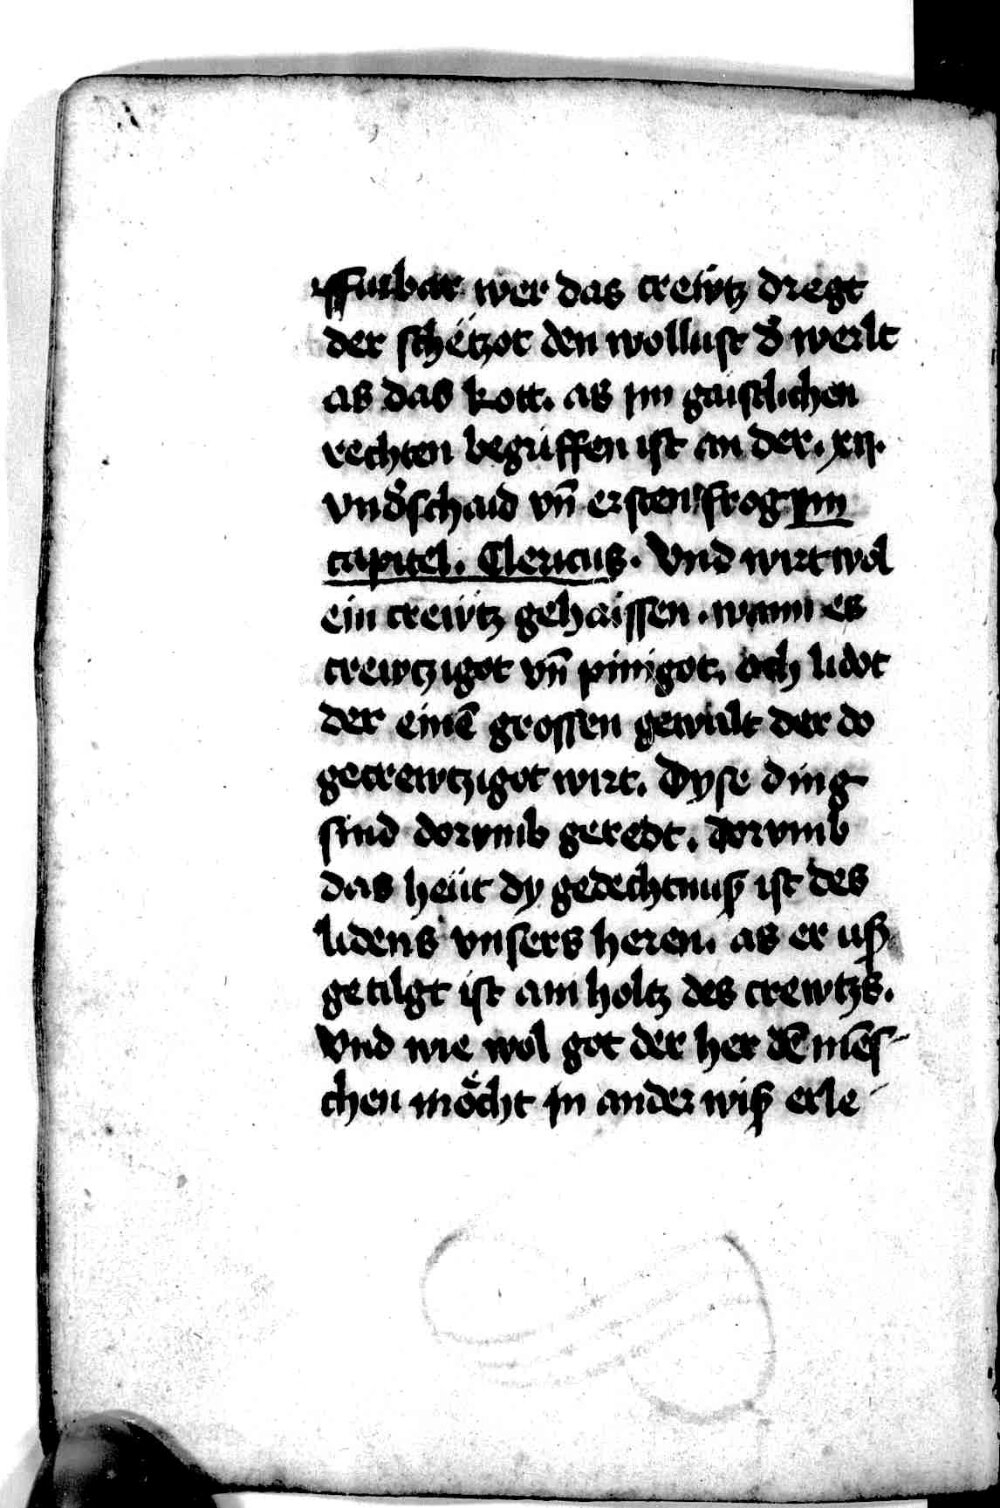 Furbar wer das creẅtz dregt
der schetzot den wollust d͛ werlt
as das kott. as jm gaistlichen
rechten begriffen ist an der. xij.
vnd͛schaid vn̄ ersten frog jm
capitel. Clericus. Vnd wirt wol
ein creẅtz gehaissen. wann es
crewtzigot vn̄ pinigot. och lidot
der einē grossen gewalt der do
gecrewtzigot wirt. Dyse ding
sind dorvmb geredt. dorvmb
das heüt dy gedechtnuß ist des
lidens vnsers heren. as er uß
getilgt ist am holtz des crewtzs.
Vnd wie wol got der her dē mēs-
chen möcht jn ander wiß erle-